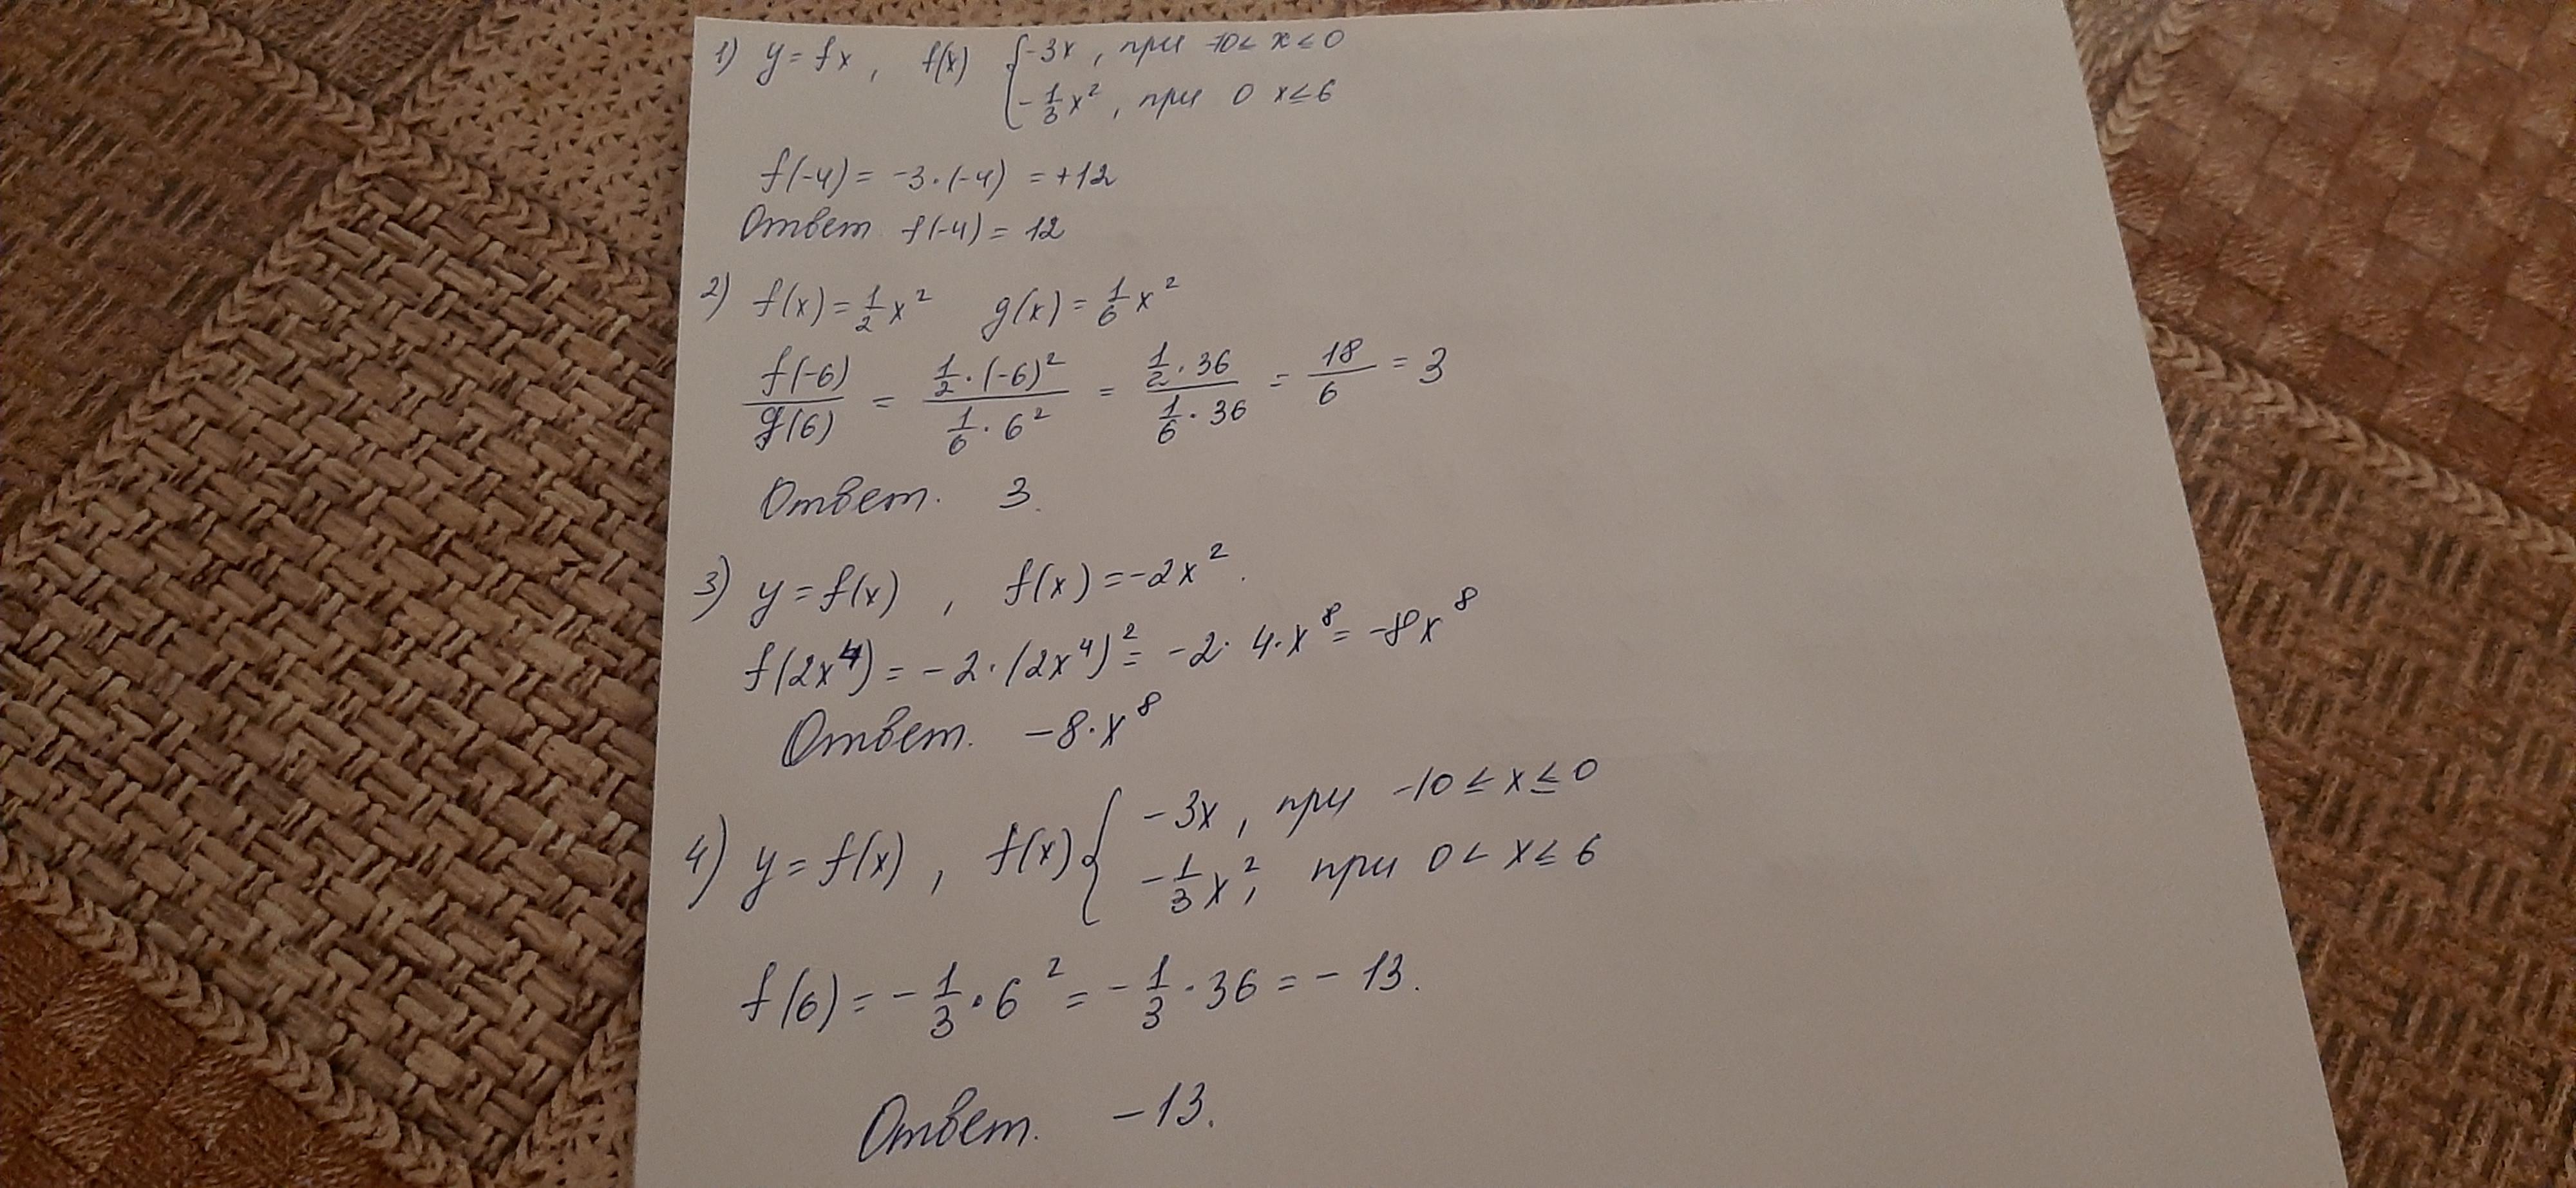 1) y = fx , f(x) { -3x , при -10 < x ≤ 0
-1/3 x², при 0 x ≤ 6
f(-4) = -3·(-4) = +12
Ответ f(-4) = 12
2) f(x) = 1/2 x² g(x) = 1/6 x²
f(-6)/g(6) = (1/2·(-6)²)/(1/6·6²) = (1/2·36)/(1/6·36) = 18/6 = 3
Ответ. 3.
3) y = f(x) , f(x) = -2x².
f(2x⁴) = -2·(2x⁴)² = -2·4·x⁸ = -8x⁸
Ответ. -8·x⁸
4) y = f(x) , f(x) { -3x , при -10 ≤ x ≤ 0
-1/3 x², при 0 < x ≤ 6
f(6) = -1/3·6² = -1/3·36 = -13.
Ответ. -13.